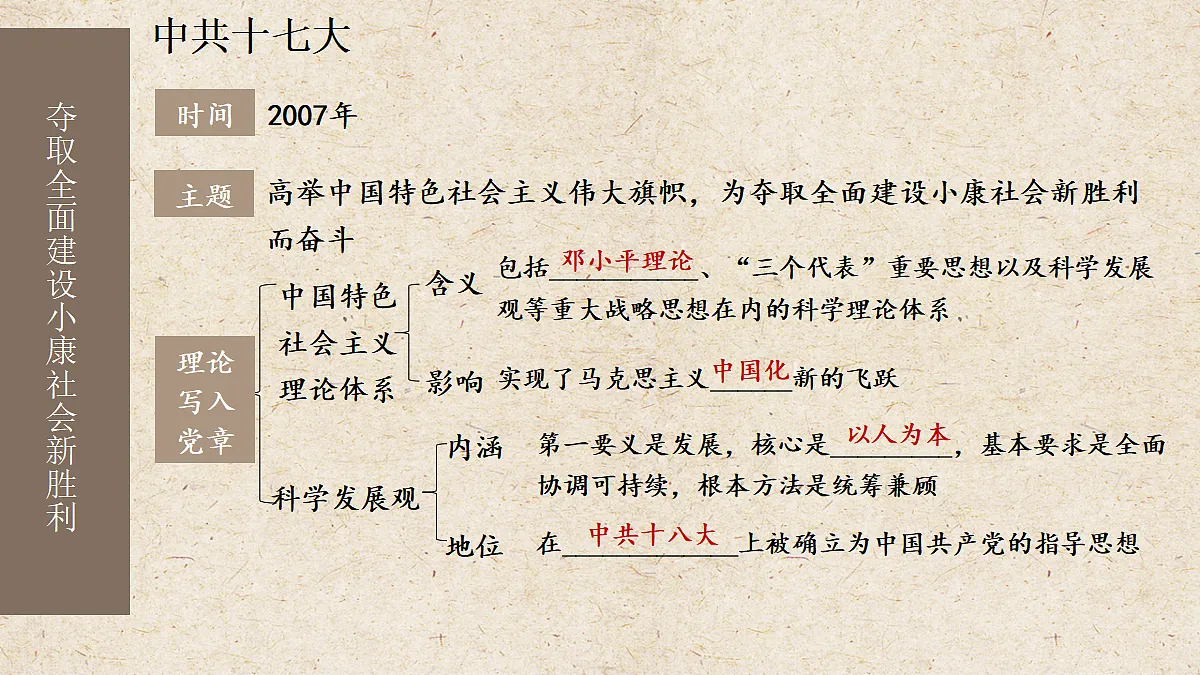 中共十七大
夺取全面建设小康社会新胜利
时间
2007年
主题
高举中国特色社会主义伟大旗帜，为夺取全面建设小康社会新胜利
而奋斗
理论
写入
党章
中国特色
社会主义
理论体系
含义
包括邓小平理论、“三个代表”重要思想以及科学发展
观等重大战略思想在内的科学理论体系
影响
实现了马克思主义中国化新的飞跃
科学发展观
内涵
第一要义是发展，核心是以人为本，基本要求是全面
协调可持续，根本方法是统筹兼顾
地位
在中共十八大上被确立为中国共产党的指导思想